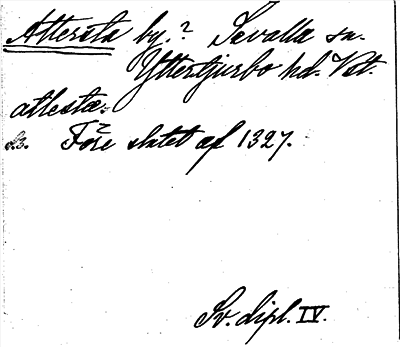 Attersta by.? Sevalla sn.
Yttertjurbo hd. Vst.
attestæ:
ds. Före slutet af 1327.
Sv. dipl. IV.